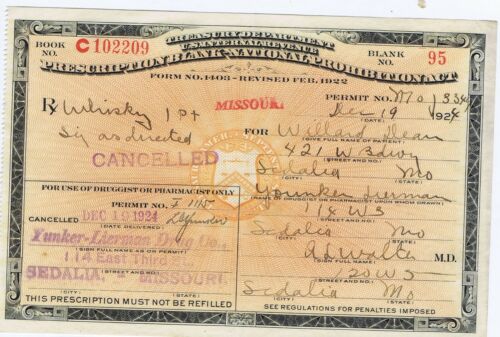 TREASURY DEPARTMENT
U.S. INTERNAL REVENUE
BOOK NO. C102209
BLANK NO. 95
PRESCRIPTION BLANK-NATIONAL PROHIBITION ACT
FORM NO. 1403 - REVISED FEB. 1922
PERMIT NO. Mo
MISSOURI
Rx Whisky 1 pt
Dec 19 1924
(DATE)
Sig as directed
FOR Willard Dean
(GIVE FULL NAME OF PATIENT)
CANCELLED
421 W Bdwy
(STREET AND NO.)
Sedalia Mo
(CITY) (STATE)
FOR USE OF DRUGGIST OR PHARMACIST ONLY
Yunker Lierman
(NAME OF DRUGGIST OR PHARMACIST UPON WHOM DRAWN)
PERMIT NO. I 1115
114 W 3
(STREET AND NO.)
CANCELLED DEC 19 1924
(DATE DELIVERED)
Sedalia Mo
(CITY) (STATE)
Yunker-Lierman Drug Co.,
(SIGN FULL NAME AS ON PERMIT)
M.D.
(SIGN FULL NAME)
114 East Third St.
(STREET AND NO.)
120 W 5
(STREET AND NO.)
SEDALIA, MISSOURI.
(CITY) (STATE)
Sedalia Mo
(CITY) (STATE)
THIS PRESCRIPTION MUST NOT BE REFILLED
SEE REGULATIONS FOR PENALTIES IMPOSED